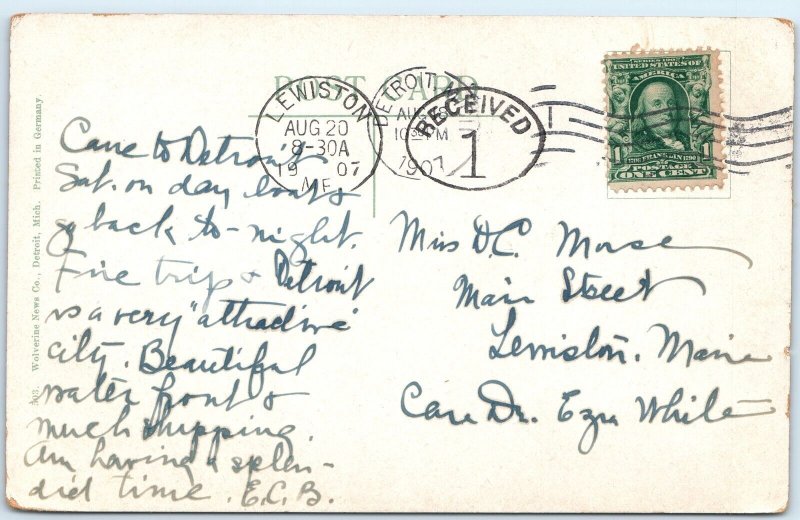 POST CARD
LEWISTON
AUG 20
8-30A
19 07
ME.
DETROIT, M
AU
10 PM
1907
RECEIVED
1
SERIES 1902
UNITED STATES OF
AMERICA
1 FRANKLIN 1
POSTAGE
ONE CENT
Wolverine News Co., Detroit, Mich. Printed in Germany.
Came to Detroit
Sat. on day boat &
go back to-night.
Fine trip & Detroit
is a very "attractive"
city. Beautiful
water front &
much shipping.
Am having a splen-
did time. E.C.B.
Miss D.C. Morse
Main Street
Lewiston, Maine
Care Dr. Ezra White